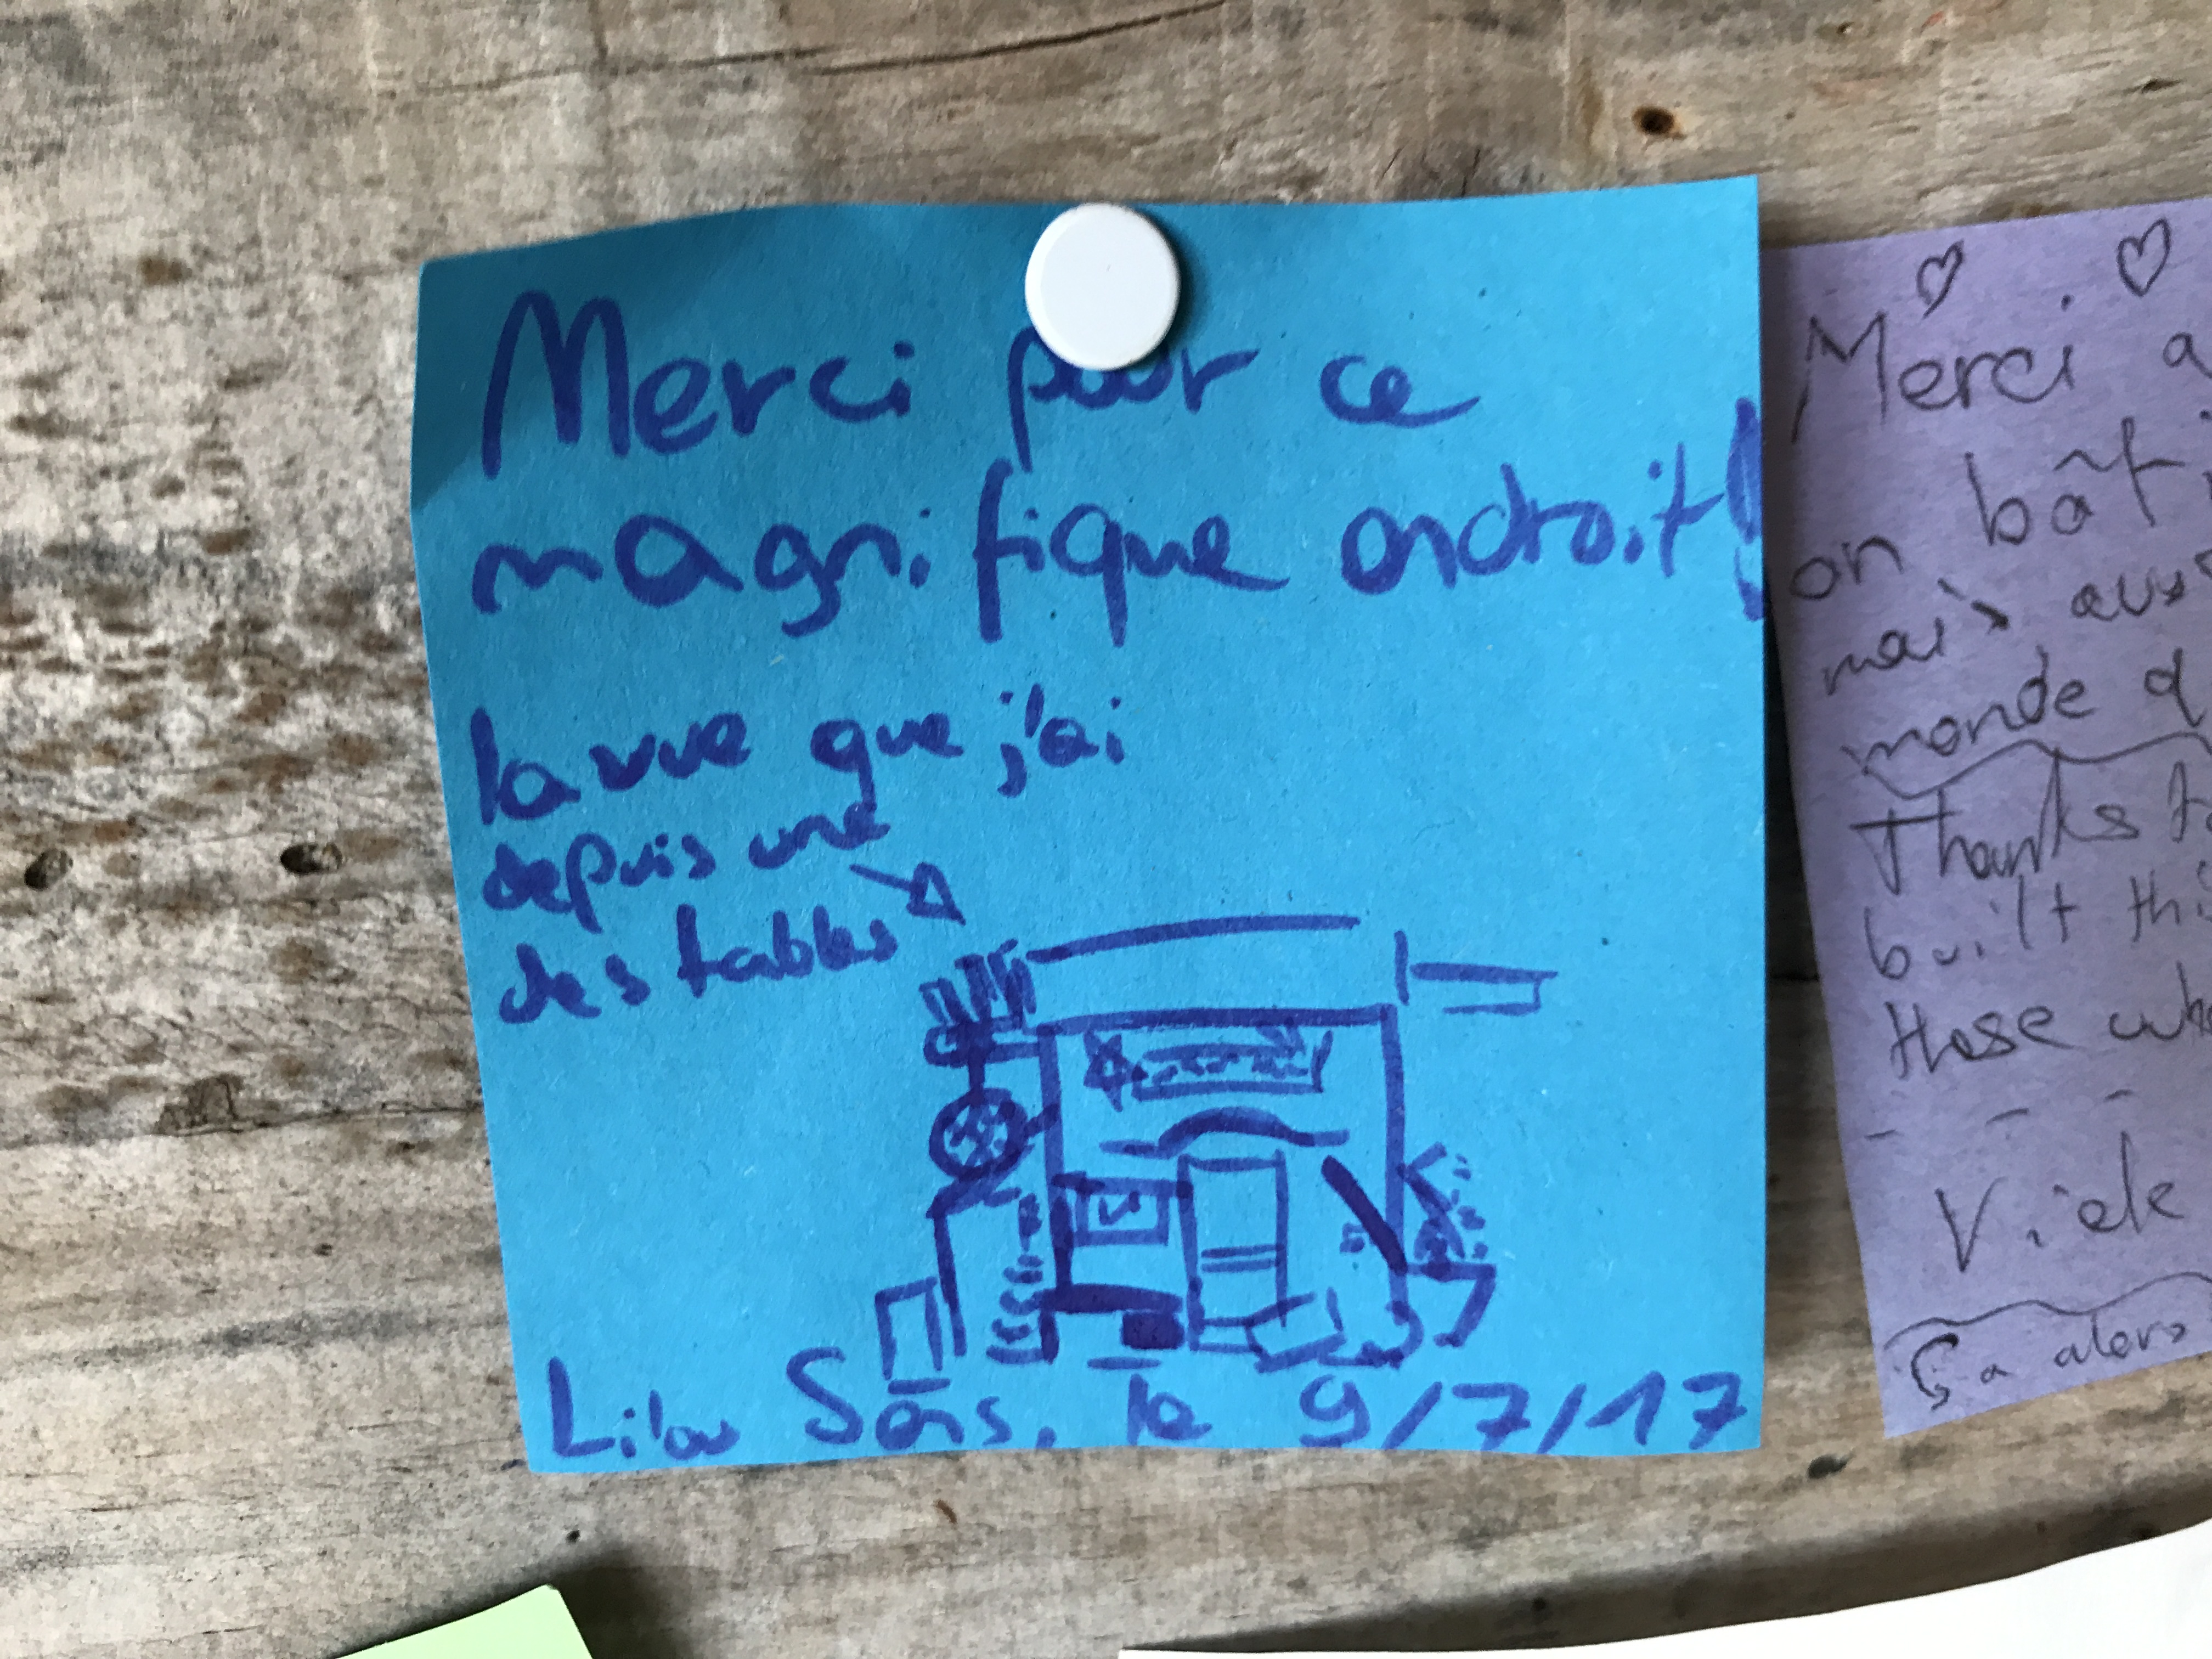 Merci pour ce
magnifique endroit!
la vue que j'ai
depuis une
des tables
le 9/7/17
Merci
on bât
mais aus
monde q
Thanks
built thi
those wh
Viele
Ça alors